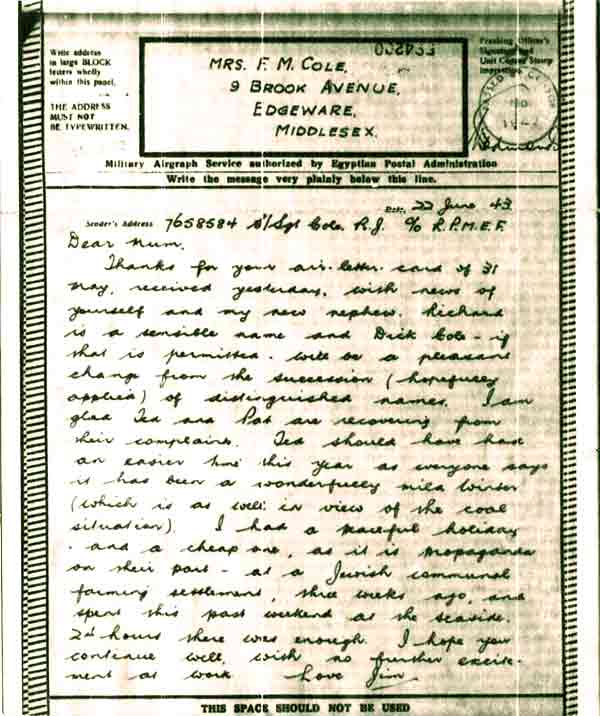 Write address
in large BLOCK
letters wholly
within this panel.
THE ADDRESS
MUST NOT
BE TYPEWRITTEN.
MRS. F. M. COLE,
9 BROOK AVENUE,
EDGEWARE,
MIDDLESEX.
Military Airgraph Service authorized by Egyptian Postal Administration
Write the message very plainly below this line.
Date. 22 June 43
Sender's Address 7658584 S/Sgt Cole. R.J. c/o R.P.M.E.F.
Dear Mum,
Thanks for your air-letter-card of 31
May, received yesterday, with news of
yourself and my new nephew. Richard
is a sensible name and Dick Cole - if
that is permitted - will be a pleasant
change from the succession (hopefully
applied) of distinguished names. I am
glad Ted and Pat are recovering from
their complaints. Ted should have had
an easier time this year as everyone says
it has been a wonderfully mild Winter
(which is as well in view of the coal
situation). I had a peaceful holiday
- and a cheap one, as it is propaganda
on their part - at a Jewish communal
farming settlement, three weeks ago, and
spent this past weekend at the seaside.
24 hours there was enough. I hope you
continue well, with no further excite-
ment at work. Love Jim
THIS SPACE SHOULD NOT BE USED